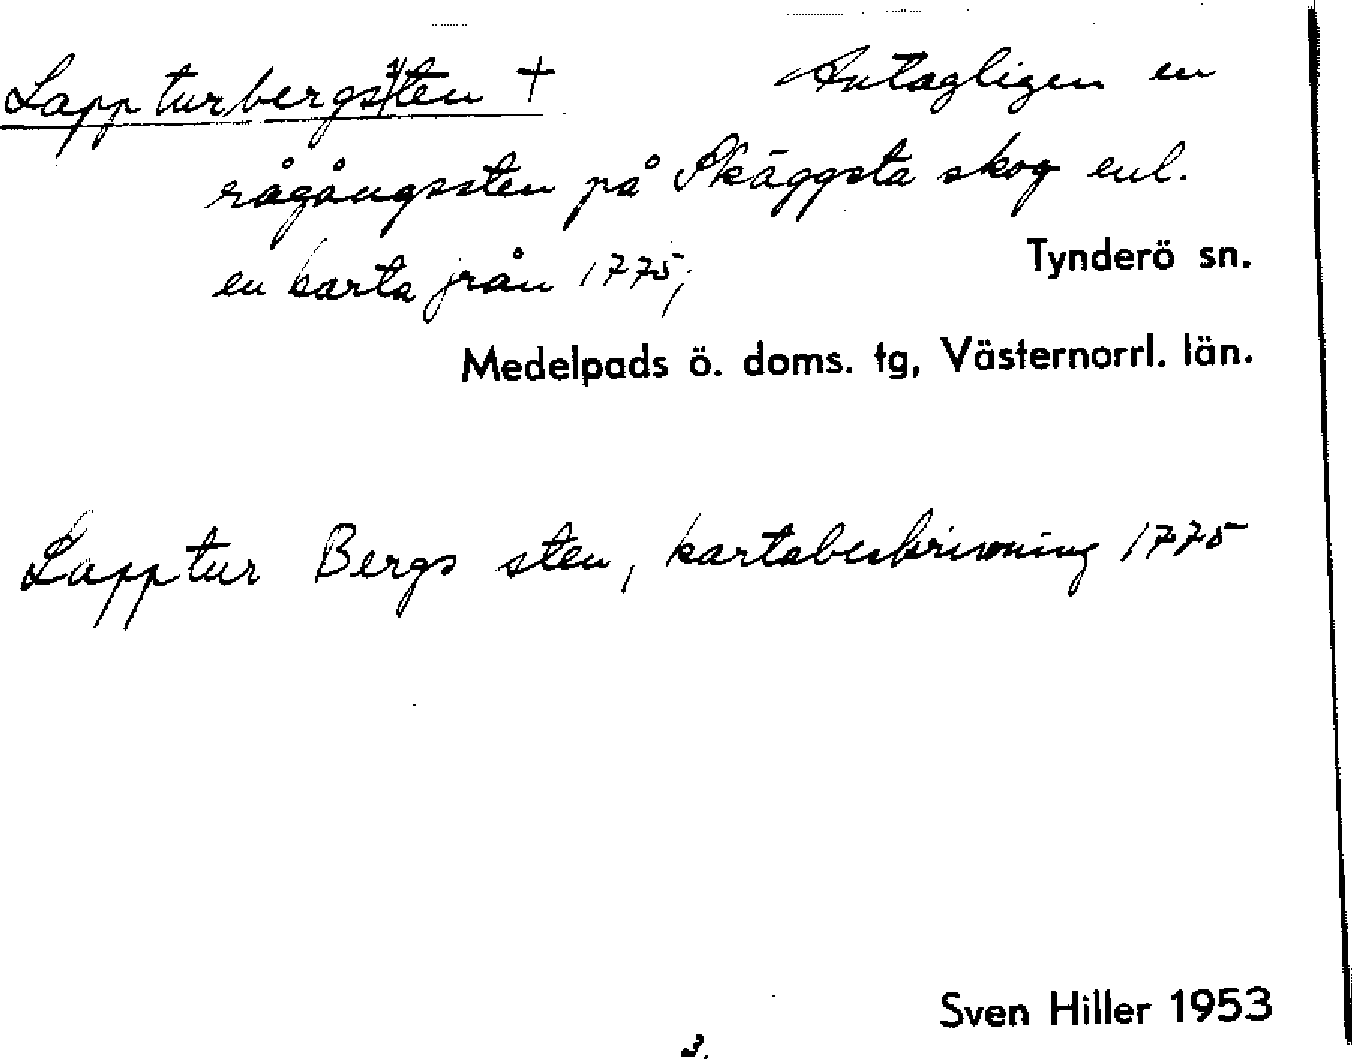 Lappturbergs/sten † Antagligen en
rågångssten på Skäggsta skog enl.
en karta från 1775;
Tynderö sn.
Medelpads ö. doms. tg, Västernorrl. län.
Lapptur Bergs sten, kartabeskrivning 1775
Sven Hiller 1953
3.